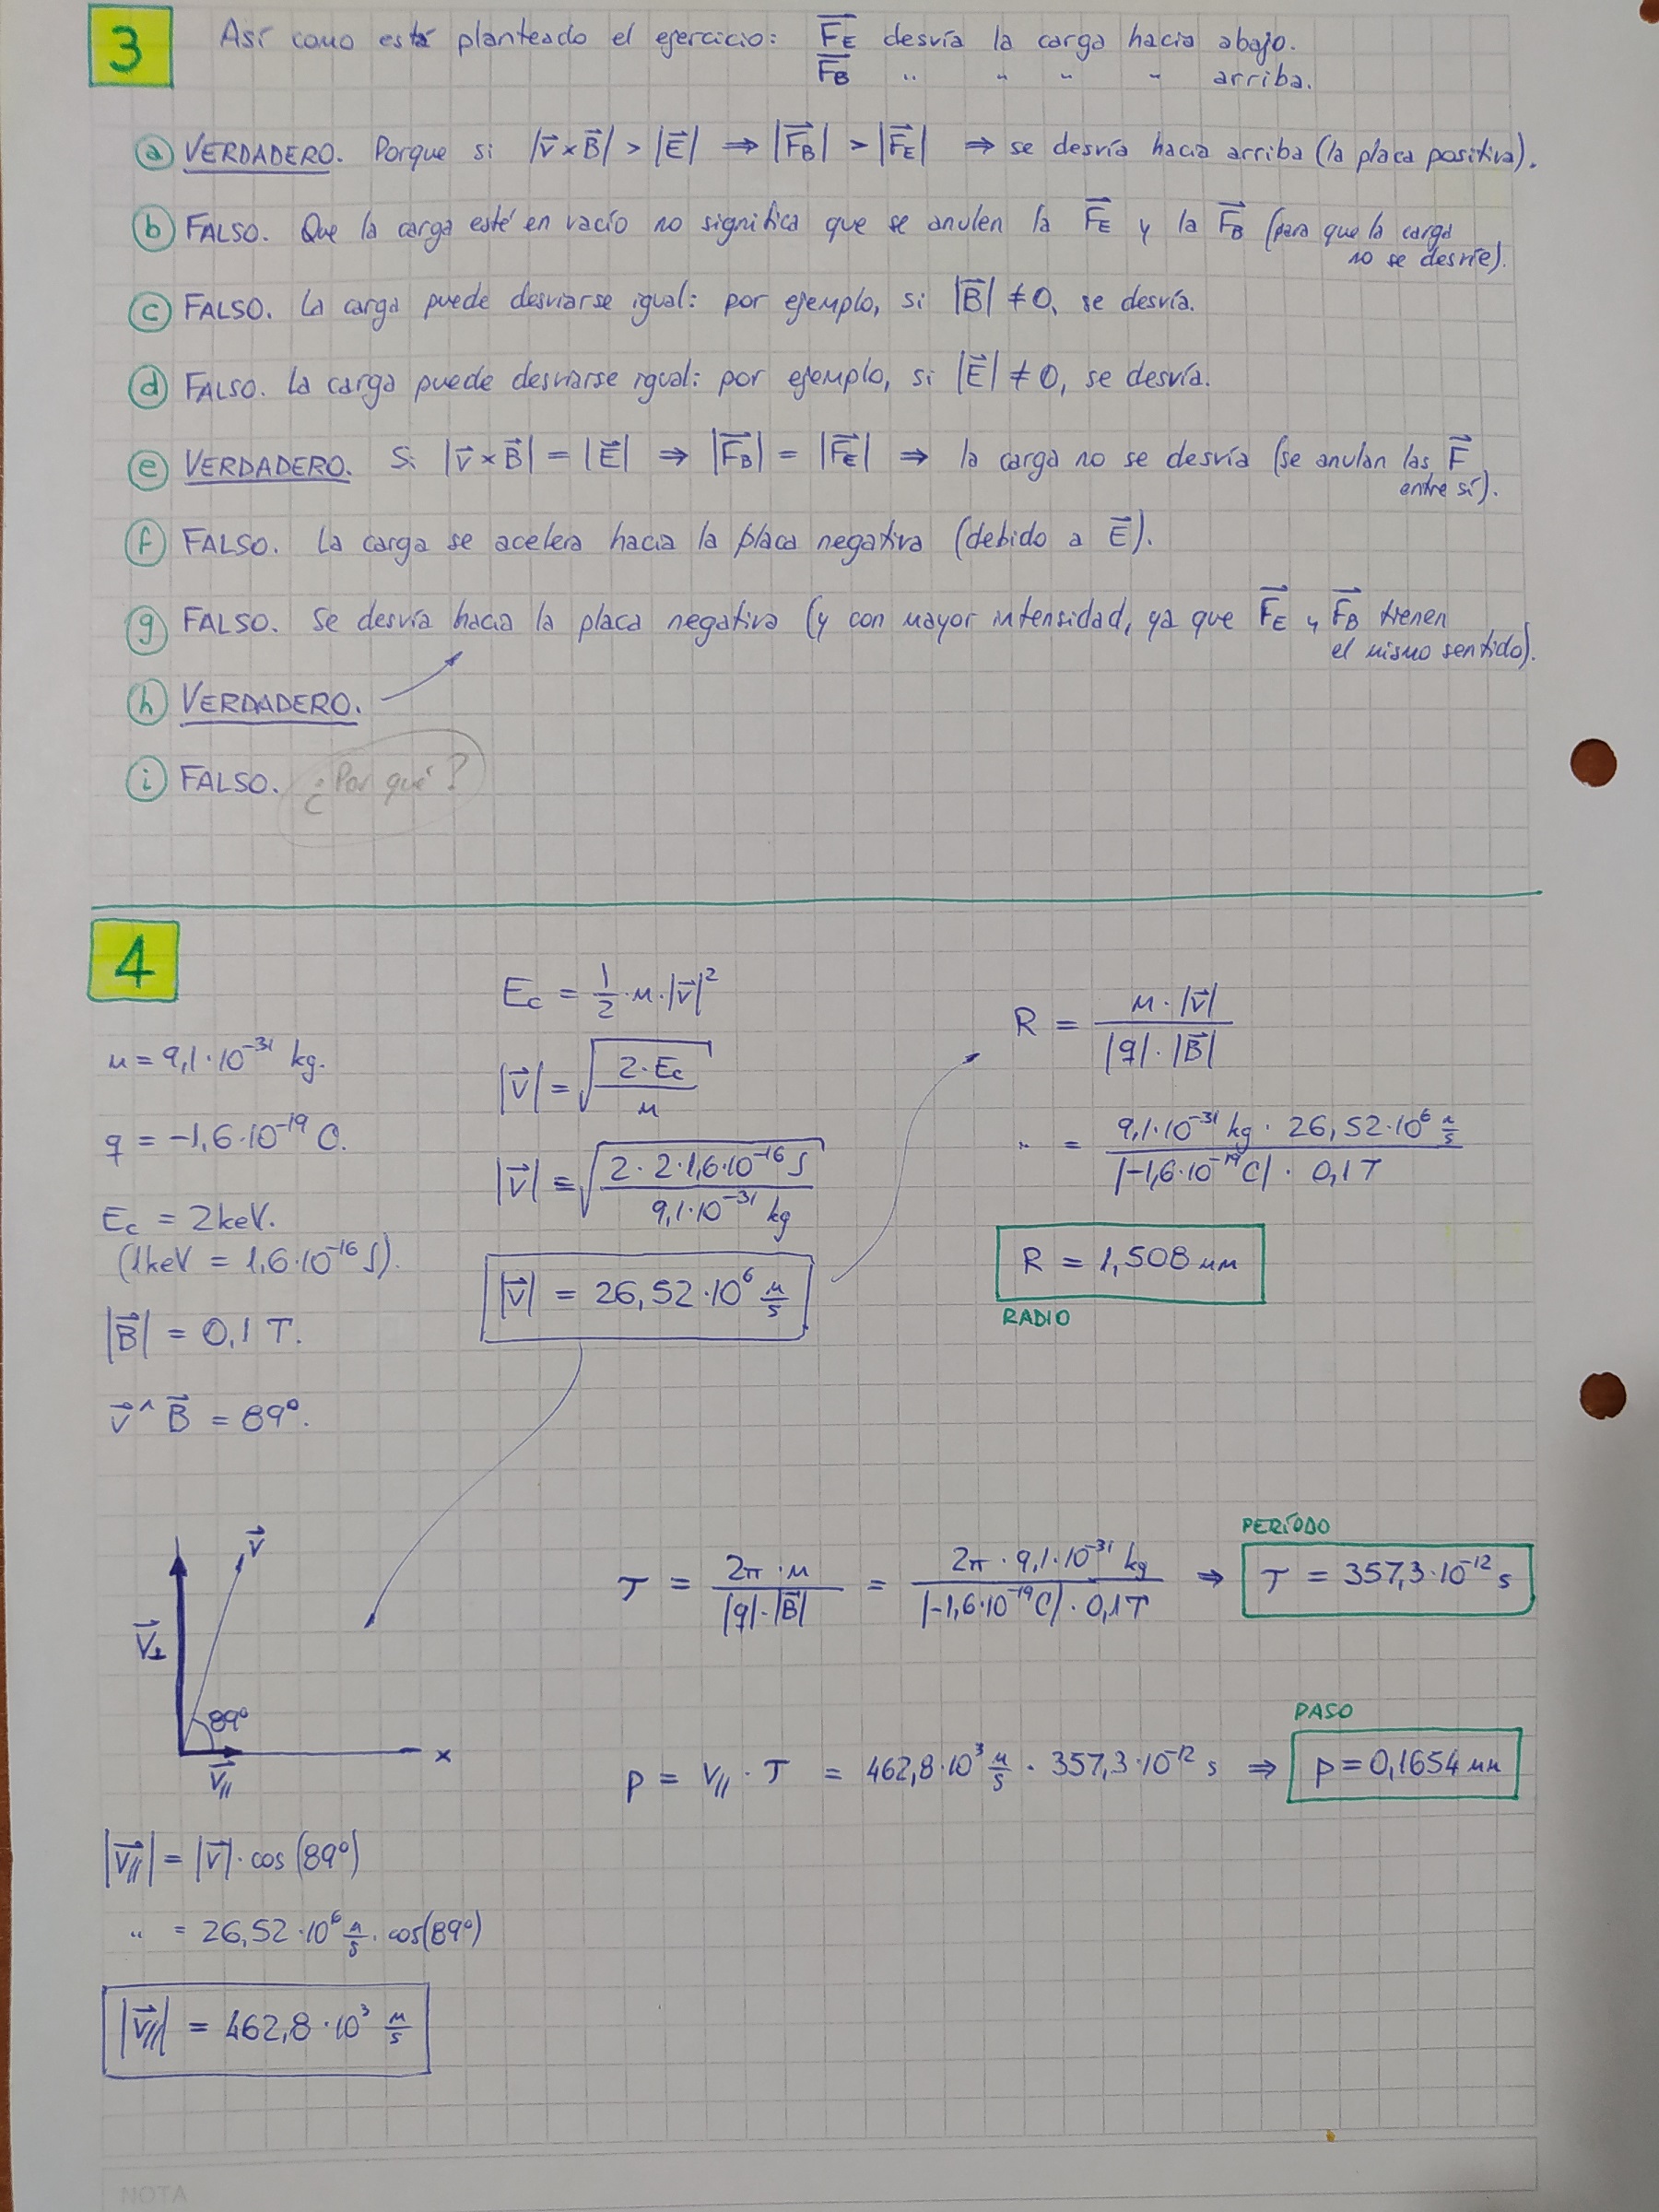 3 Así como está planteado el ejercicio: F⃗_E desvía la carga hacia abajo.
F⃗_B " " " " arriba.
a) VERDADERO. Porque si |v⃗ × B⃗| > |E⃗| ⇒ |F⃗_B| > |F⃗_E| ⇒ se desvía hacia arriba (la placa positiva).
b) FALSO. Que la carga esté en vacío no significa que se anulen la F⃗_E y la F⃗_B (para que la carga
no se desvíe).
c) FALSO. La carga puede desviarse igual: por ejemplo, si |B⃗| ≠ 0, se desvía.
d) FALSO. La carga puede desviarse igual: por ejemplo, si |E⃗| ≠ 0, se desvía.
e) VERDADERO. Si |v⃗ × B⃗| = |E⃗| ⇒ |F⃗_B| = |F⃗_E| ⇒ la carga no se desvía (se anulan las F⃗
entre sí).
f) FALSO. La carga se acelera hacia la placa negativa (debido a E⃗).
g) FALSO. Se desvía hacia la placa negativa (y con mayor intensidad, ya que F⃗_E y F⃗_B tienen
el mismo sentido).
h) VERDADERO.
i) FALSO. ¿Por qué?
4
m = 9,1·10⁻³¹ kg.
q = -1,6·10⁻¹⁹ C.
Ec = 2keV.
(1keV = 1,6·10⁻¹⁶ J).
|B⃗| = 0,1 T.
v⃗ ^ B⃗ = 89°.
Ec = 1/2 · m · |v⃗|²
|v⃗| = √(2·Ec / m)
|v⃗| = √(2·2·1,6·10⁻¹⁶ J / 9,1·10⁻³¹ kg)
|v⃗| = 26,52·10⁶ m/s
R = m·|v⃗| / |q|·|B⃗|
" = 9,1·10⁻³¹ kg · 26,52·10⁶ m/s / |-1,6·10⁻¹⁹ C| · 0,1 T
R = 1,508 mm
RADIO
v⃗
V⃗⊥
89°
x
V⃗//
PERÍODO
T = 2π·m / |q|·|B⃗| = 2π · 9,1·10⁻³¹ kg / |-1,6·10⁻¹⁹ C| · 0,1 T ⇒ T = 357,3·10⁻¹² s
PASO
p = V// · T = 462,8·10³ m/s · 357,3·10⁻¹² s ⇒ p = 0,1654 mm
|V⃗//| = |v⃗| · cos (89°)
" = 26,52·10⁶ m/s · cos(89°)
|V⃗//| = 462,8·10³ m/s
NOTA